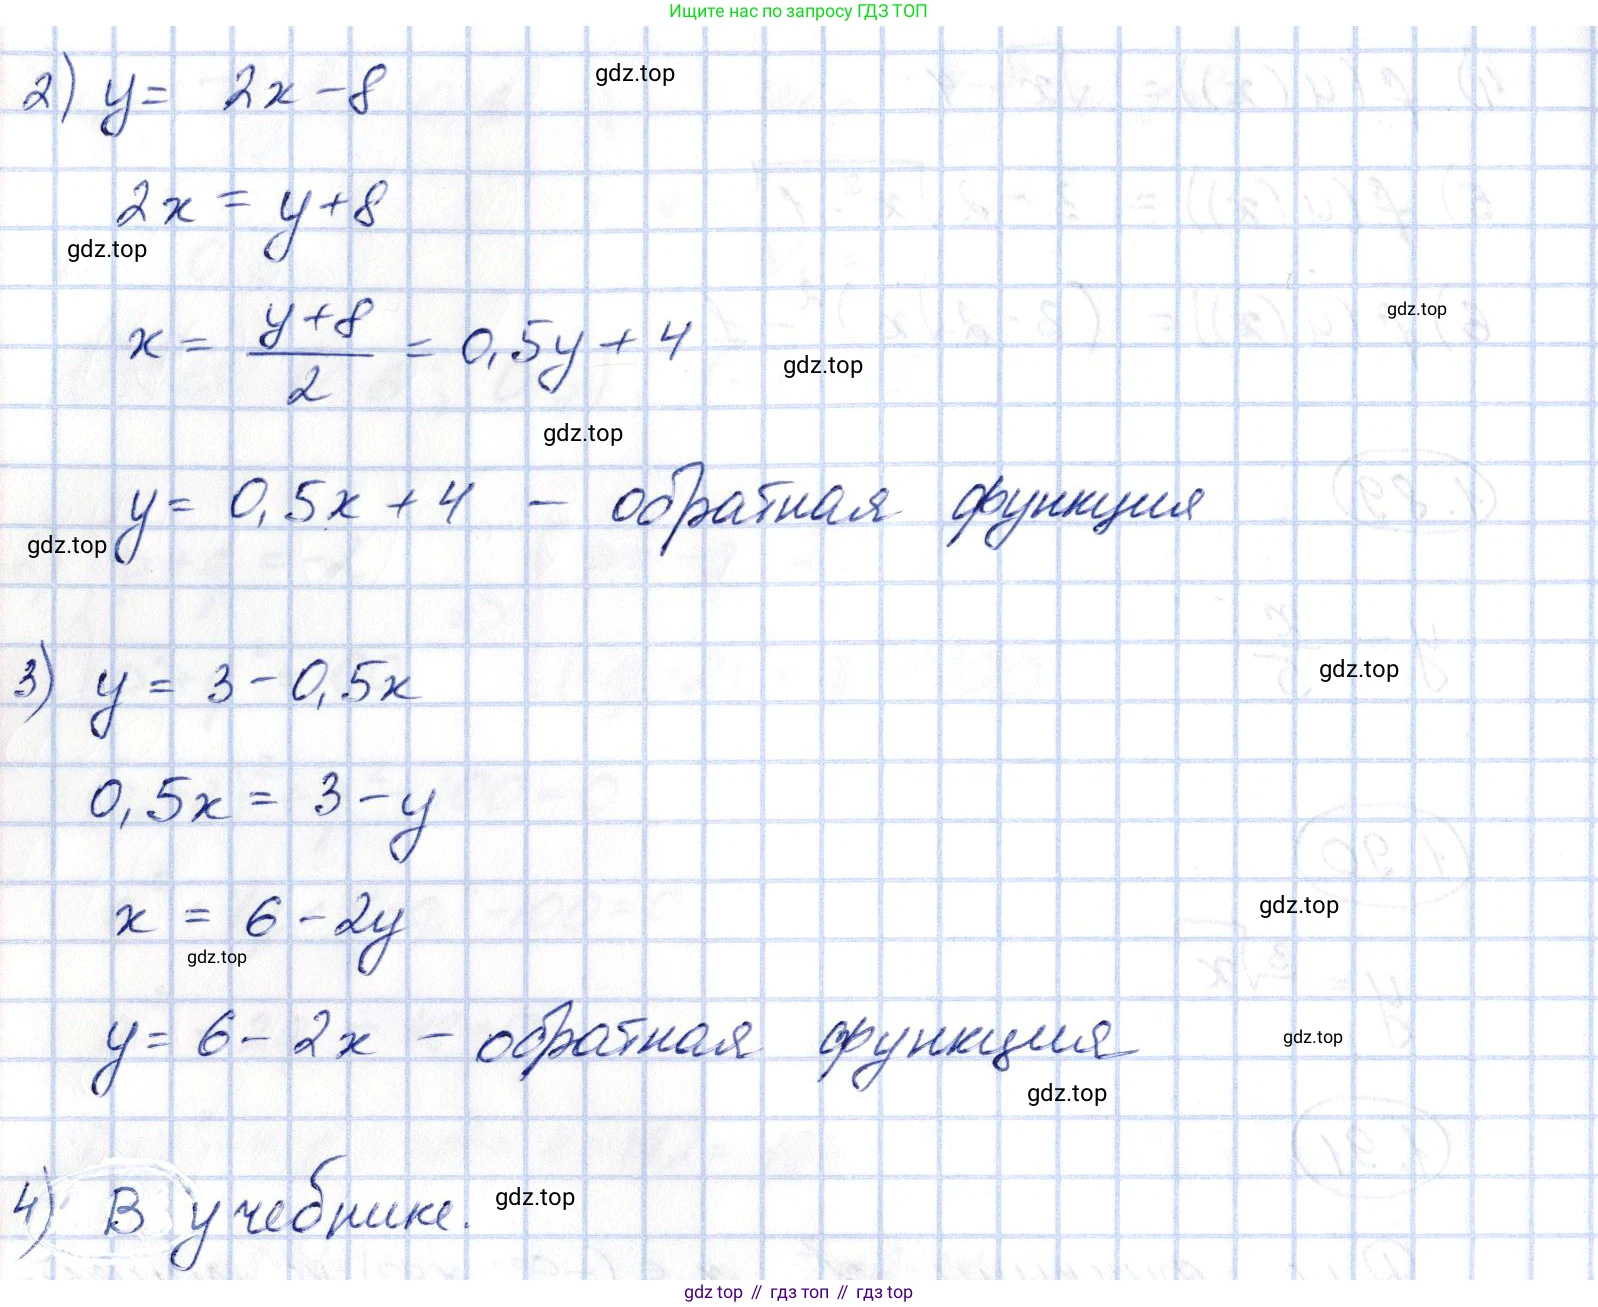 Ищите нас по запросу ГДЗ ТОП
2) y = 2x - 8
gdz.top
2x = y + 8
gdz.top
x = \frac{y+8}{2} = 0,5y + 4
gdz.top
gdz.top
gdz.top
y = 0,5x + 4 - обратная функция
gdz.top
3) y = 3 - 0,5x
gdz.top
0,5x = 3 - y
x = 6 - 2y
gdz.top
gdz.top
y = 6 - 2x - обратная функция
gdz.top
gdz.top
4) В учебнике.
gdz.top
gdz top // гдз топ // гдз top